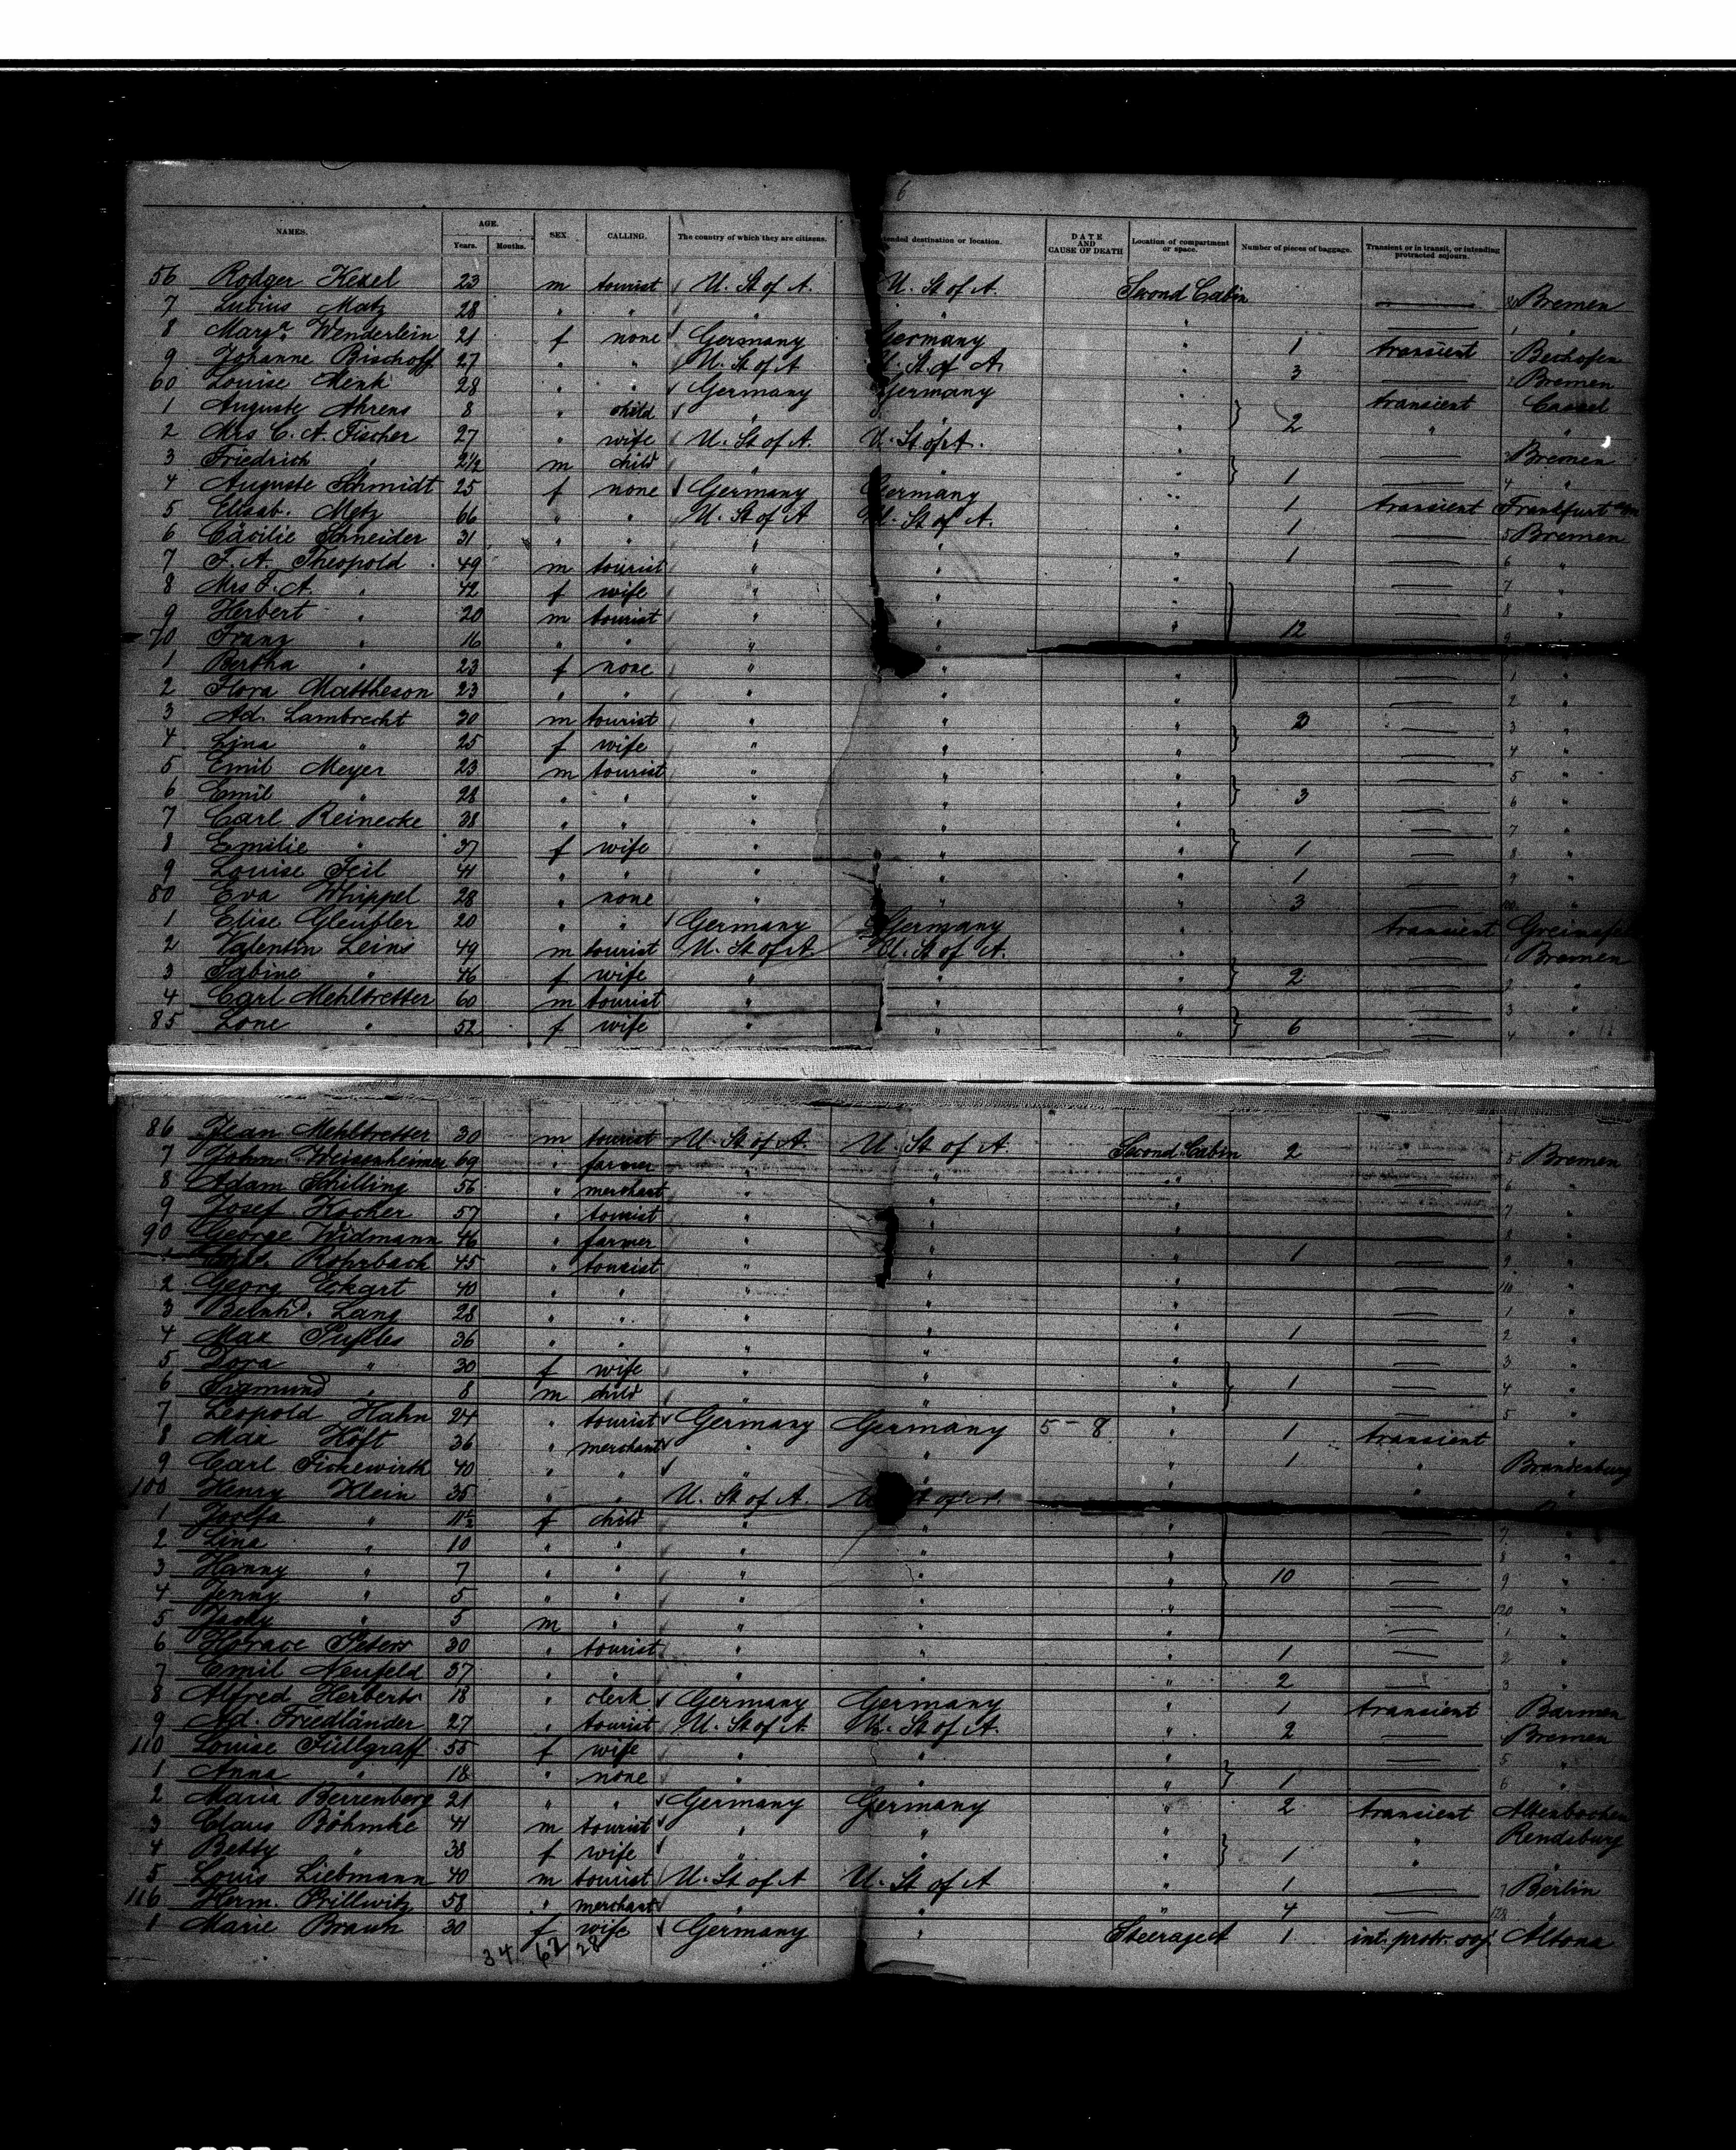 6
NAMES. AGE. Years. Months. SEX. CALLING. The country of which they are citizens. ended destination or location. DATE AND CAUSE OF DEATH Location of compartment or space. Number of pieces of baggage. Transient or in transit, or intending protracted sojourn.
56 Rodger Kexel 23 m tourist U. St of A. U. St of A. Second Cabin — Bremen
7 Lucius Matz 28 " " " " " — 1 "
8 Marg. Wenderlein 21 f none Germany Germany " 1 transient Bechofen
9 Johanne Bischoff 27 " " U. St of A U. St. of A. " 3 — 2 Bremen
60 Louise Menk 28 " " Germany Germany " transient Cassel
1 Auguste Ahrens 8 " child " " " 2 " "
2 Mrs C. A. Fischer 27 " wife U. St of A. U. St of A. " — 3 Bremen
3 Friedrich " 2½ m child " " " 1 — 4 "
4 Auguste Schmidt 25 f none Germany Germany " 1 transient Frankfurt
5 Elisab. Metz 66 " " U. St of A U. St of A. " 1 — 5 Bremen
6 Cäcilie Schneider 31 " " " " " 1 — 6 "
7 F. A. Theopold 49 m tourist " " " — 7 "
8 Mrs F. A. " 42 f wife " " " — 8 "
9 Herbert " 20 m tourist " " " 12 — 9 "
70 Franz " 16 " " " "
1 Bertha " 23 f none " " " — 1 "
2 Flora Mattheson 23 " " " " " — 2 "
3 Ad. Lambrecht 30 m tourist " " " — 3 "
4 Lina " 25 f wife " " " — 4 "
5 Emil Meyer 23 m tourist " " " — 5 "
6 Emil " 28 " " " " " 3 — 6 "
7 Carl Reinecke 38 " " " " " — 7 "
8 Emilie " 37 f wife " " " 1 — 8 "
9 Louise Feil 41 " " " " " 1 — 9 "
80 Eva Whippel 28 " none " " " 3 — "
1 Elise Gleufler 20 " " Germany Germany " transient
2 Valentin Leins 49 m tourist U. St of A. U. St of A. " — 1 Bremen
3 Sabine " 46 f wife " " " 2 — 2 "
4 Carl Mehltretter 60 m tourist " " " — 3 "
85 Lone " 52 f wife " " " 6 — 4 "
86 Jean Mehltretter 30 m tourist U. St of A. U. St of A. Second Cabin 2 — 5 Bremen
7 John Weisenheimer 69 " farmer " " " — 6 "
8 Adam Schilling 56 " merchant " " — 7 "
9 Josef Kocher 57 " tourist " " " — 8 "
90 George Widmann 46 " farmer " " " 1 — 9 "
Rohrbach 45 " tourist " " " — 110 "
2 Georg Eckart 40 " " " " " — 1 "
3 Bernhd. Lang 28 " " " " " 1 — 2 "
4 Max 36 " " " " " — 3 "
5 Dora " 30 f wife " " " 1 — 4 "
6 Sigmund " 8 m child " " " — 5 "
7 Leopold Hahn 24 " tourist Germany Germany 5 - 8 " 1 transient "
8 Max Höft 36 " merchant " " " 1 " Brandenburg
9 Carl Fickewirth 40 " " " " " "
100 Henry Klein 35 " " U. St of A. U. St of A.
1 Josefa " 11½ f child " " " — 7 "
2 Lina " 10 " " " " " — 8 "
3 Hanny " 7 " " " " " 10 — 9 "
4 Jenny " 5 " " " " " — 120 "
5 " 5 m " " " — 1 "
6 Horace Peters 30 " tourist " " " 1 — 2 "
7 Emil Neufeld 37 " " " " " 2 — 3 "
8 Alfred Herberts 18 " clerk Germany Germany " 1 transient Barmen
9 Ad. Friedländer 27 " tourist U. St of A. U. St of A. " 2 — 4 Bremen
110 Louise Füllgraff 55 f wife " " " — 5 "
1 Anna " 18 " none " " " 1 — 6 "
2 Maria Berrenberg 21 " " Germany Germany " 2 transient Altenbochum
3 Claus Böhmke 41 m tourist " " " " Rendsburg
4 Betty " 38 f wife " " " 1 " "
5 Louis Liebmann 40 m tourist U. St of A U. St of A " 1 — 7 Berlin
116 Herm. Prillwitz 58 " merchant " " " 4 — 128 "
1 Marie Braun 30 f wife Germany " Steerage A 1 int. protr. soj. Altona
34 62 28